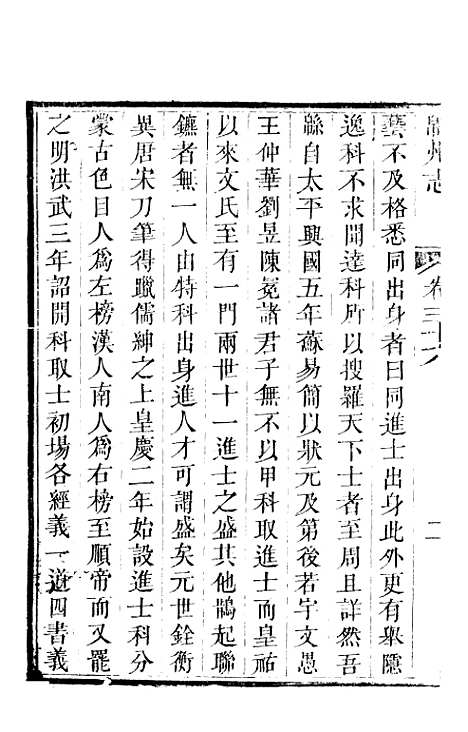 縣州志
卷三十六
二
藝不及格悉同出身者曰同進士出身此外更有舉隱
逸科不求聞達科所以搜羅天下士者至周且詳然吾
緜自太平興國五年蘇易簡以狀元及第後若宇文愚
王仲華劉昱陳寃諸君子無不以甲科取進士而皇祐
以來文氏至有一門兩世十一進士之盛其他鵲起聯
鑣者無一人由特科出身進人才可謂盛矣元世銓衡
異居宋刀筆得躐儒紳之上皇慶二年始設進士科分
蒙古色目人爲左榜漢人南人爲右榜至順帝而又罷
之明洪武三年詔開科取士初場各經義一道四書義